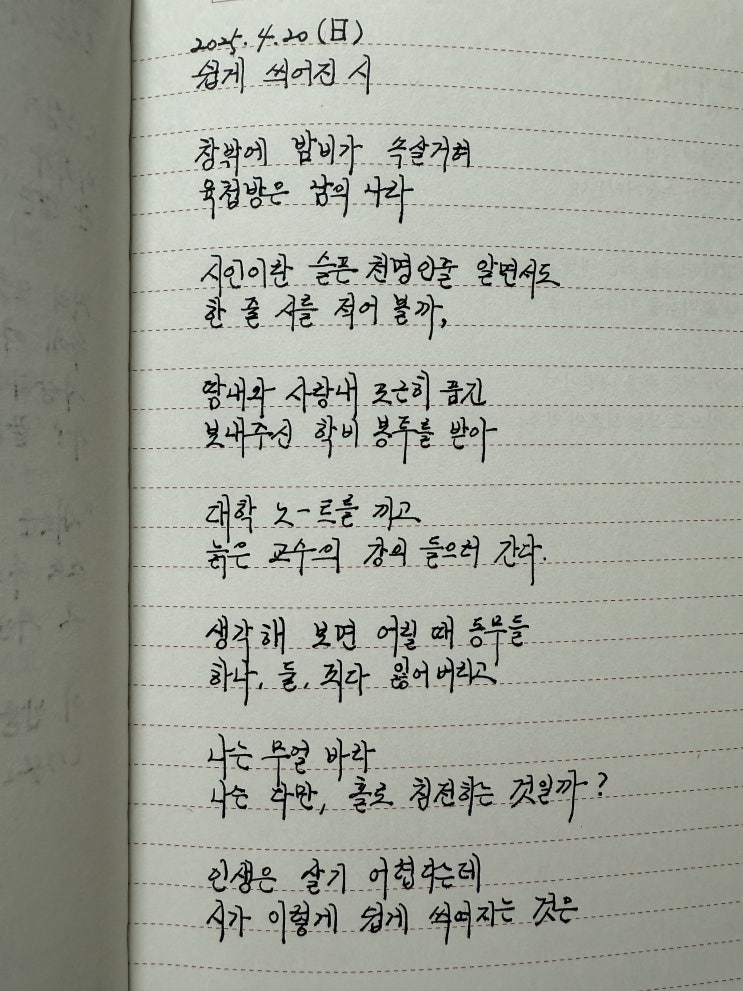 2025.4.20(日)
쉽게 씌어진 시
창밖에 밤비가 속살거려
육첩방은 남의 나라
시인이란 슬픈 천명인줄 알면서도
한 줄 시를 적어 볼까,
땀내와 사랑내 포근히 품긴
보내주신 학비 봉투를 받아
대학 노-트를 끼고
늙은 교수의 강의 들으러 간다.
생각해 보면 어릴 때 동무들
하나, 둘, 죄다 잃어버리고
나는 무얼 바라
나는 다만, 홀로 침전하는 것일까?
인생은 살기 어렵다는데
시가 이렇게 쉽게 씌여지는 것은